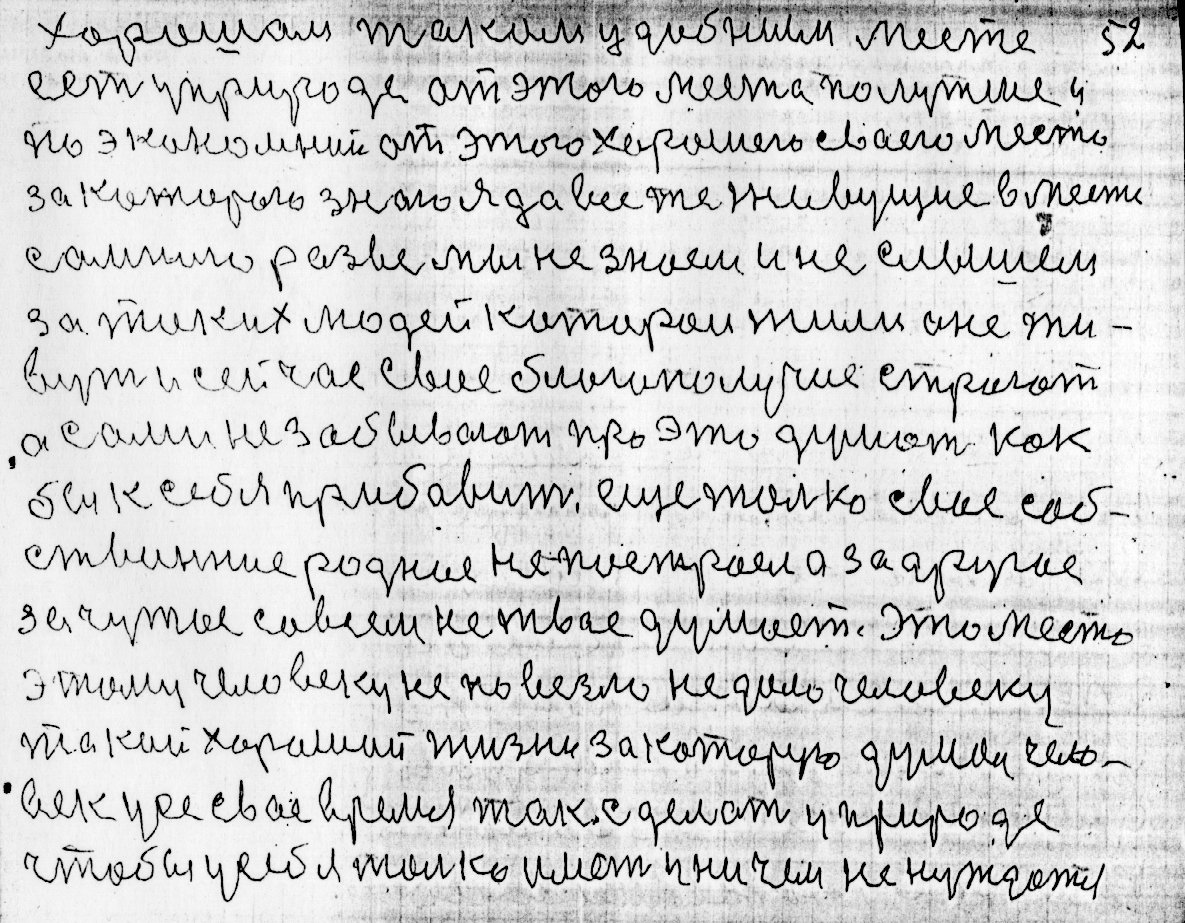 хорошам такам удобним месте 52
сет уприроде от этого места полутше и
по экакомний от этого хорошего сваего место
за которого знаюяда все те живущие в месте
самнию разве мы не знаем и не слышем
за таких людей каторои жили ане жи-
вут и сейчас свае благополучие строют
а сами не забывают про это думют как
бы к себя прибавит. еще толко свае соб-
ственние родние не построел а за другое
за чужое савсем не твое думает. Это место
этому человеку не повезло не дало человеку
такий хороший жизни за каторую думал чело-
век усе свае время так сделат у природе
чтобы усебя толко имет и ничем не нуждатя